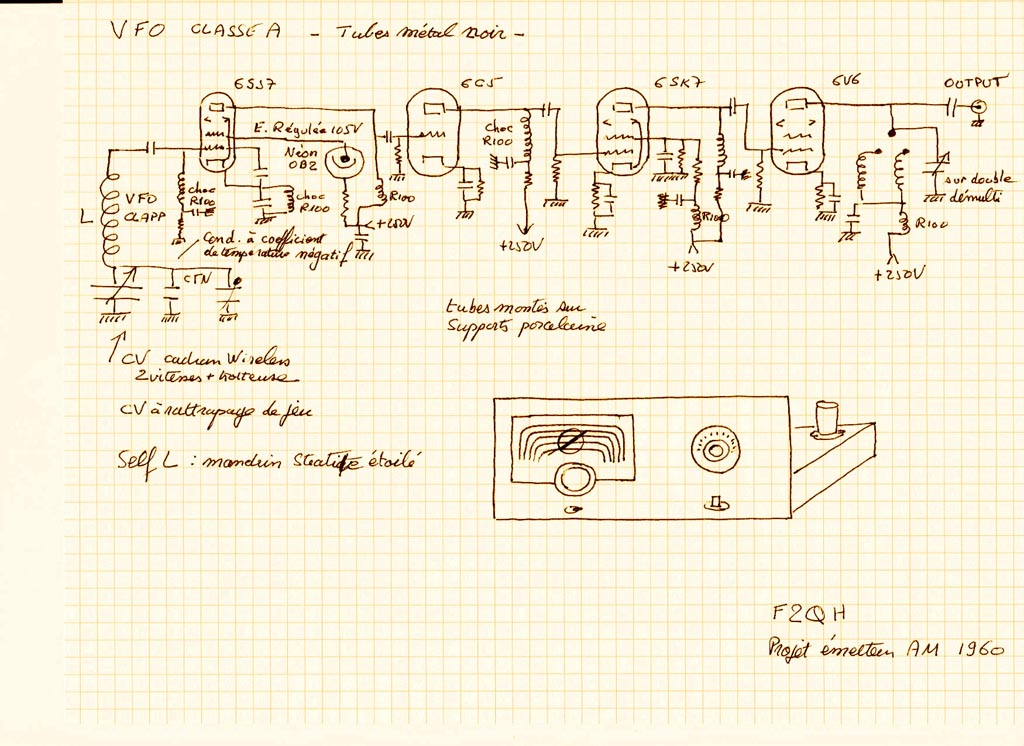 VFO CLASSE A - Tubes métal noir -
6SJ7
6C5
6SK7
6V6
OUTPUT
E. Régulée 105V
Néon
OB2
Choc
R100
Choc
R100
R100
+250V
Choc
R100
+250V
R100
+250V
sur double
démulti
R100
+250V
L
VFO
CLAPP
Cond. à coefficient
de température négatif
CTN
tubes montés sur
supports porcelaine
CV cadran Wireless
2 vitesses + trotteuse
CV à rattrapage de jeu
Self L : mandrin Steatite étoilé
F2QH
Projet émetteur AM 1960